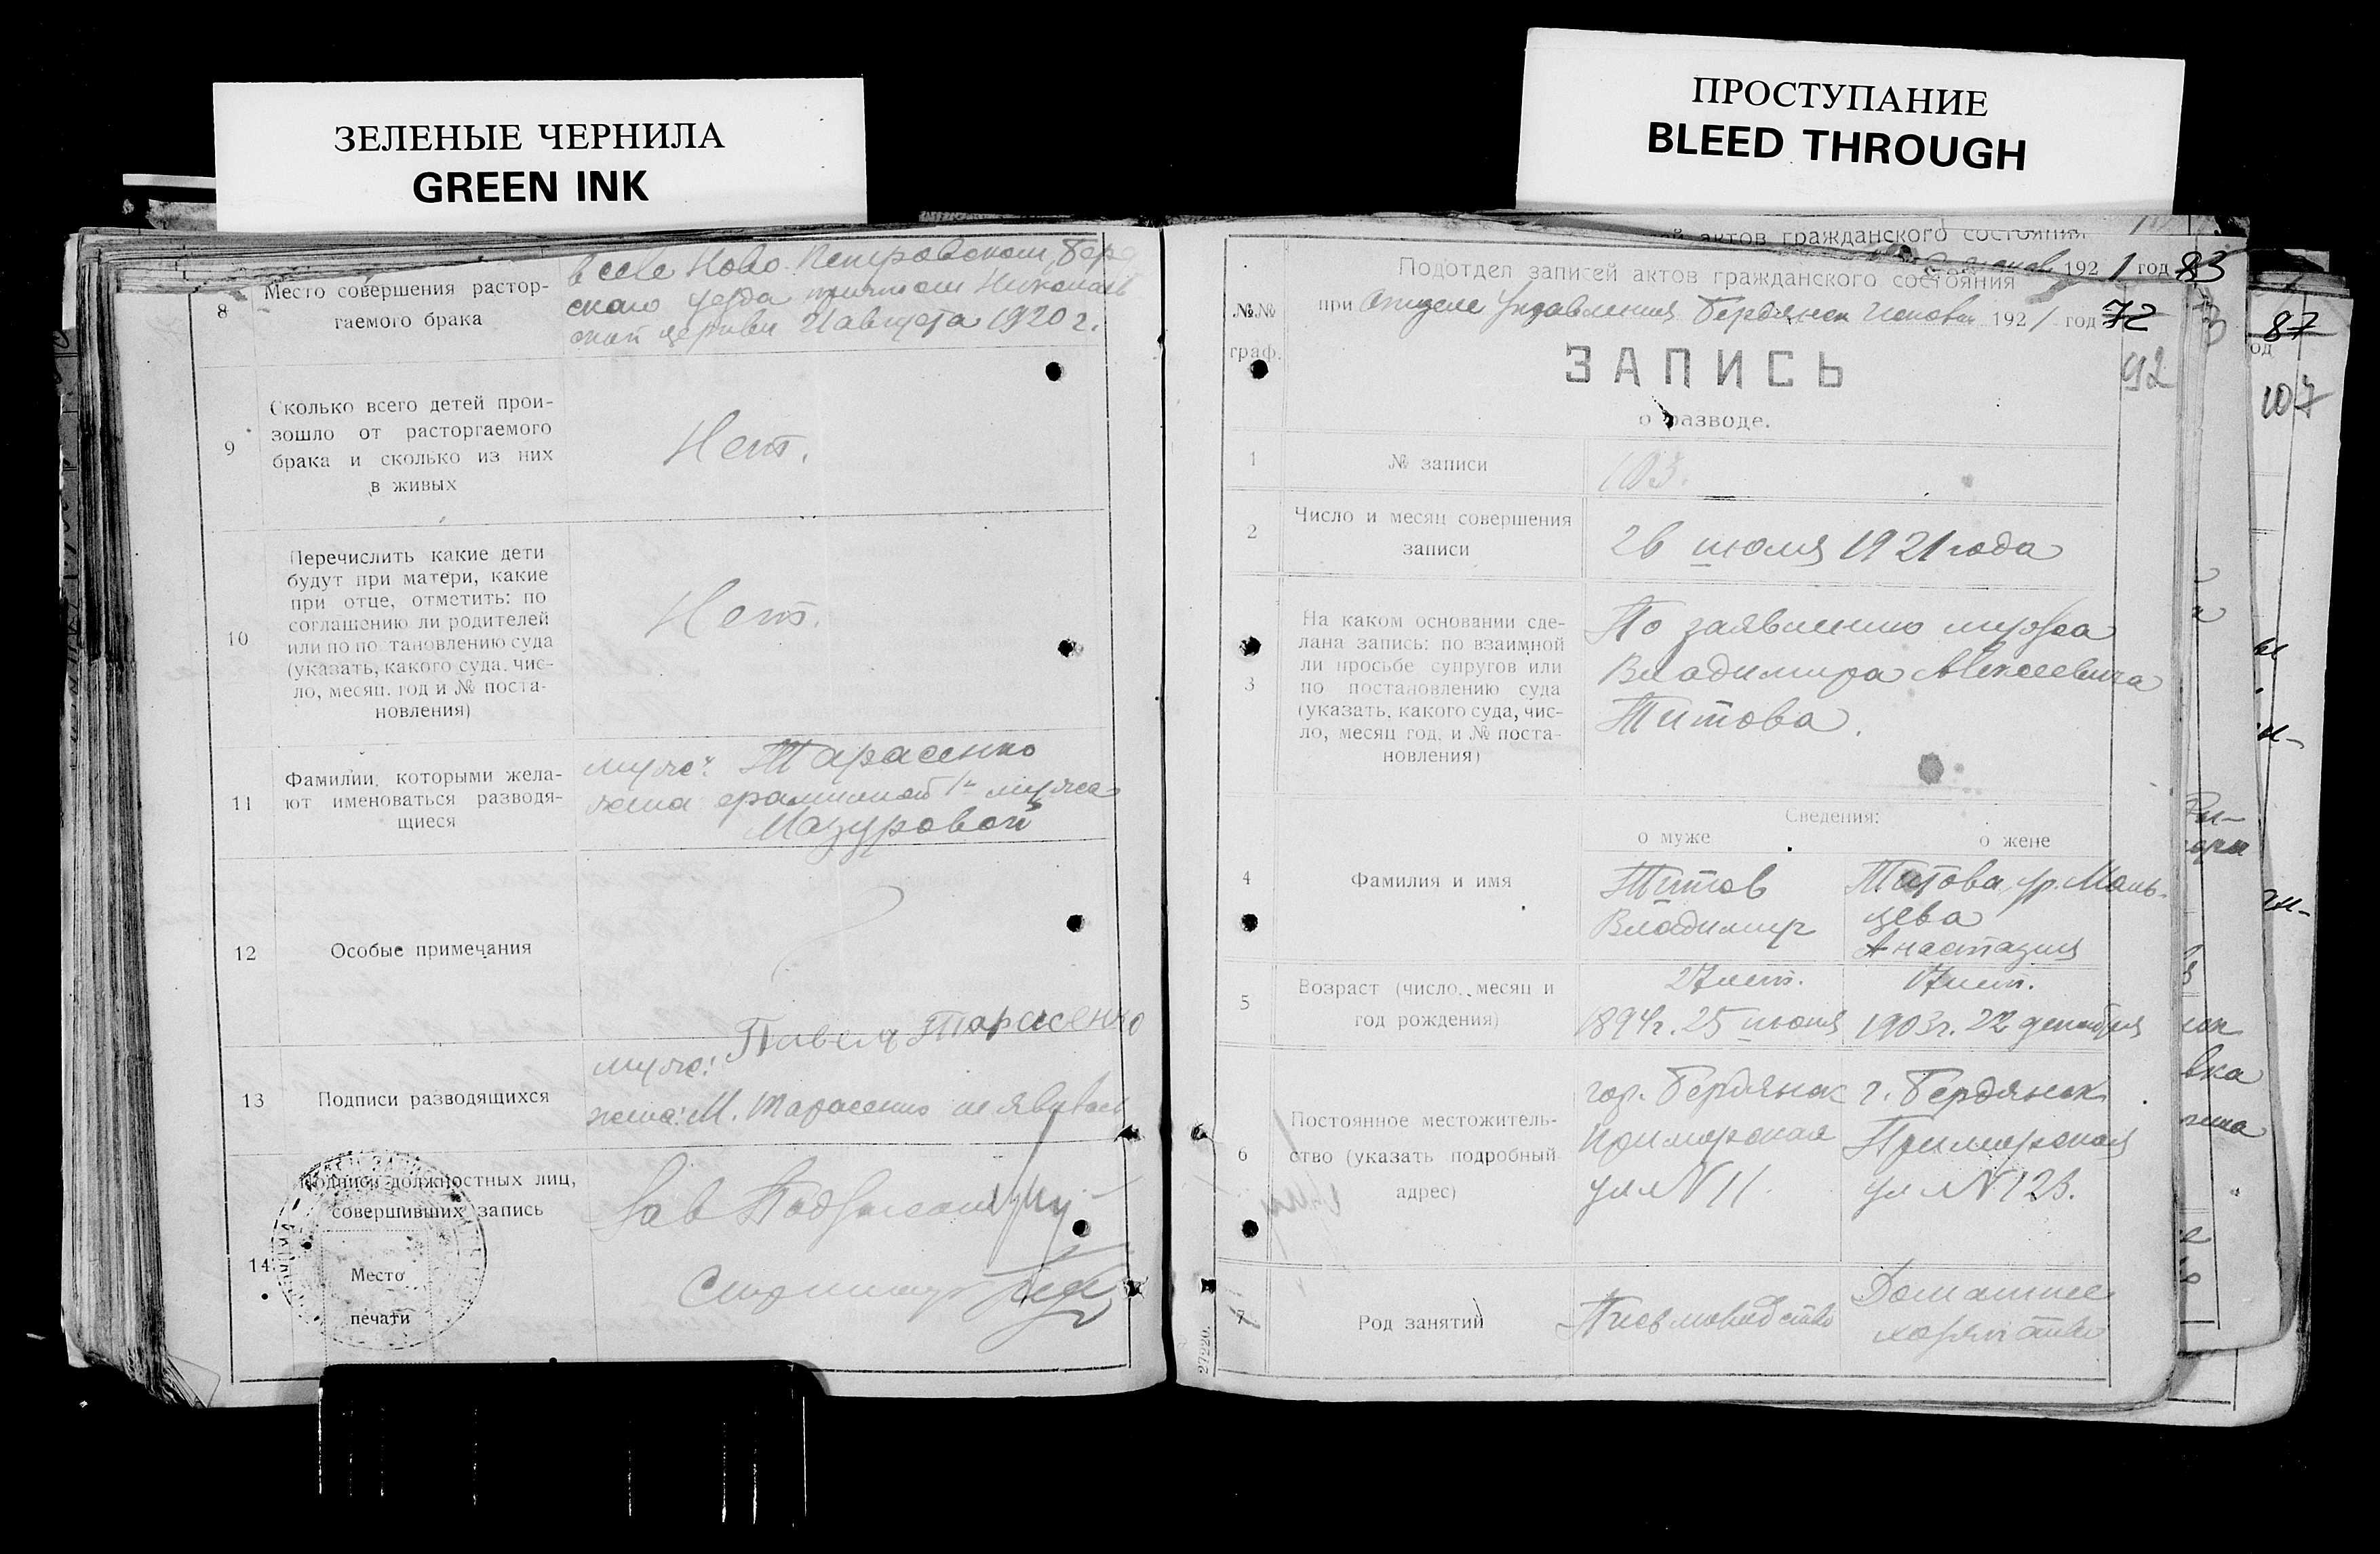 ЗЕЛЕНЫЕ ЧЕРНИЛА
GREEN INK
ПРОСТУПАНИЕ
BLEED THROUGH
8
Место совершения растор-
гаемого брака
в селе Ново-Петровском, Берд
ского уезда причтом Николаев
ской церкви 21 августа 1920 г.
9
Сколько всего детей прои-
зошло от расторгаемого
брака и сколько из них
в живых
Нет.
10
Перечислить какие дети
будут при матери, какие
при отце, отметить: по
соглашению ли родителей
или по по тановлению суда
(указать, какого суда, чис-
ло, месяц, год и № поста-
новления)
Нет.
11
Фамилии, которыми жела-
ют именоваться разводя-
щиеся
муж: Тарасенко
жена фамилией 1го мужа
Мазуровой
12
Особые примечания
13
Подписи разводящихся
муж: Павел Тарасенко
жена: М. Тарасенко не явилась
14
Подписи должностных лиц,
совершивших запись
Место
печати
Зав
актов гражданского состояния
192 1 год 83
Подотдел записей актов гражданского состояния
№№
граф.
при Отделе Управления Бердянск Исполкома 1921 год 72
92
87
107
ЗАПИСЬ
о разводе.
1
№ записи
103.
2
Число и месяц совершения
записи
26 июля 1921 года
3
На каком основании сде-
лана запись: по взаимной
ли просьбе супругов или
по постановлению суда
(указать, какого суда, чис-
ло, месяц год, и № поста-
новления)
По заявлению мужа
Владимира Алексеевича
Титова.
Сведения:
о муже
о жене
4
Фамилия и имя
Титов
Владимир
Титова, ур. Маль-
цева
Анастазия
5
Возраст (число, месяц и
год рождения)
27 лет.
1894 г. 25 июня
17 лет.
1903 г. 22 декабря
6
Постоянное местожитель-
ство (указать подробный
адрес)
гор. Бердянск
Приморская
ул N 11.
г. Бердянск
Приморская
ул N 123.
7
Род занятий
Письмоводство
Домашнее
хозяйство
27220.